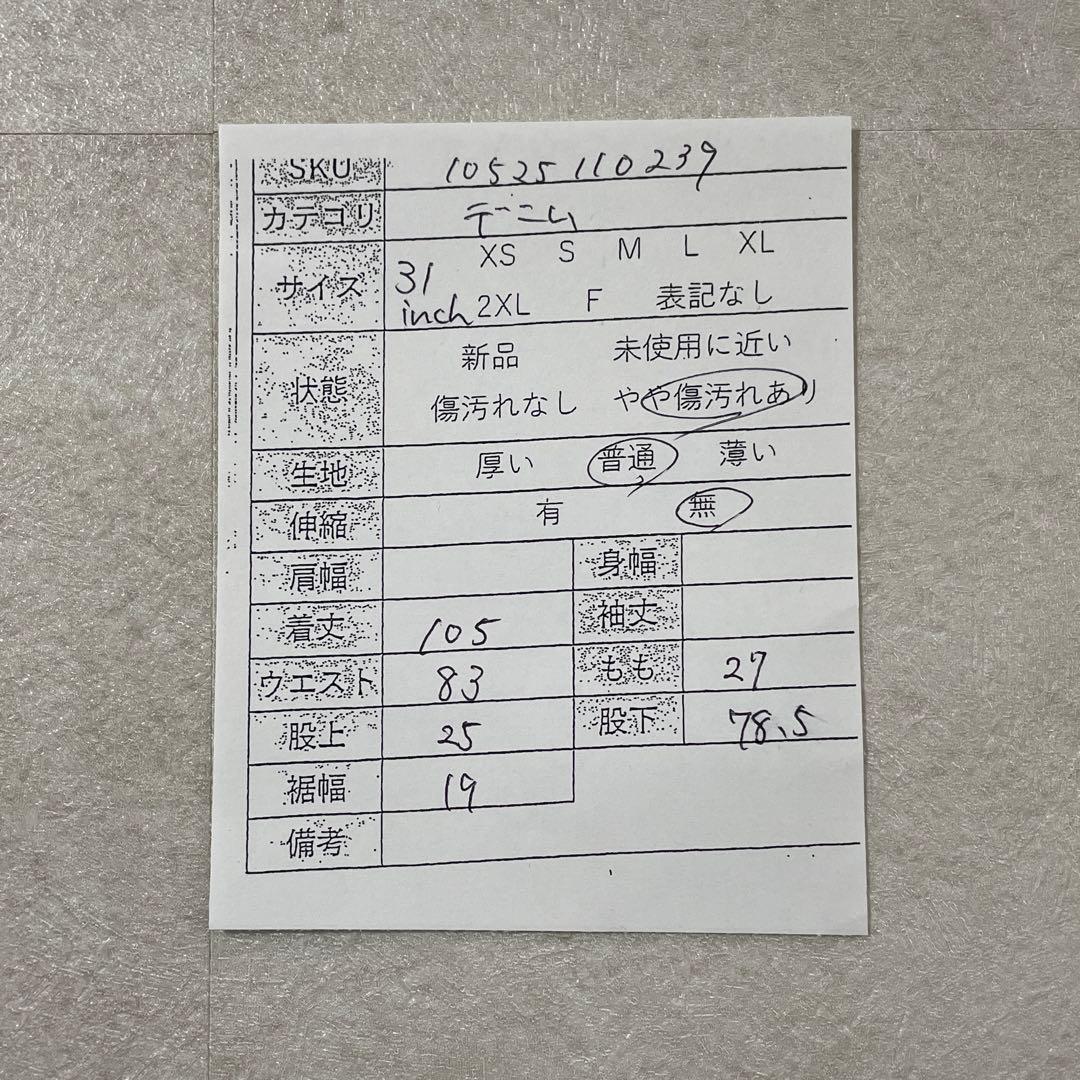 SKU 10525 110239
カテゴリ デニム
サイズ 31 inch XS S M L XL
2XL F 表記なし
状態 新品 未使用に近い
傷汚れなし やや傷汚れあり
生地 厚い 普通 薄い
伸縮 有 無
肩幅 身幅
着丈 105 袖丈
ウエスト 83 もも 27
股上 25 股下 78.5
裾幅 19
備考